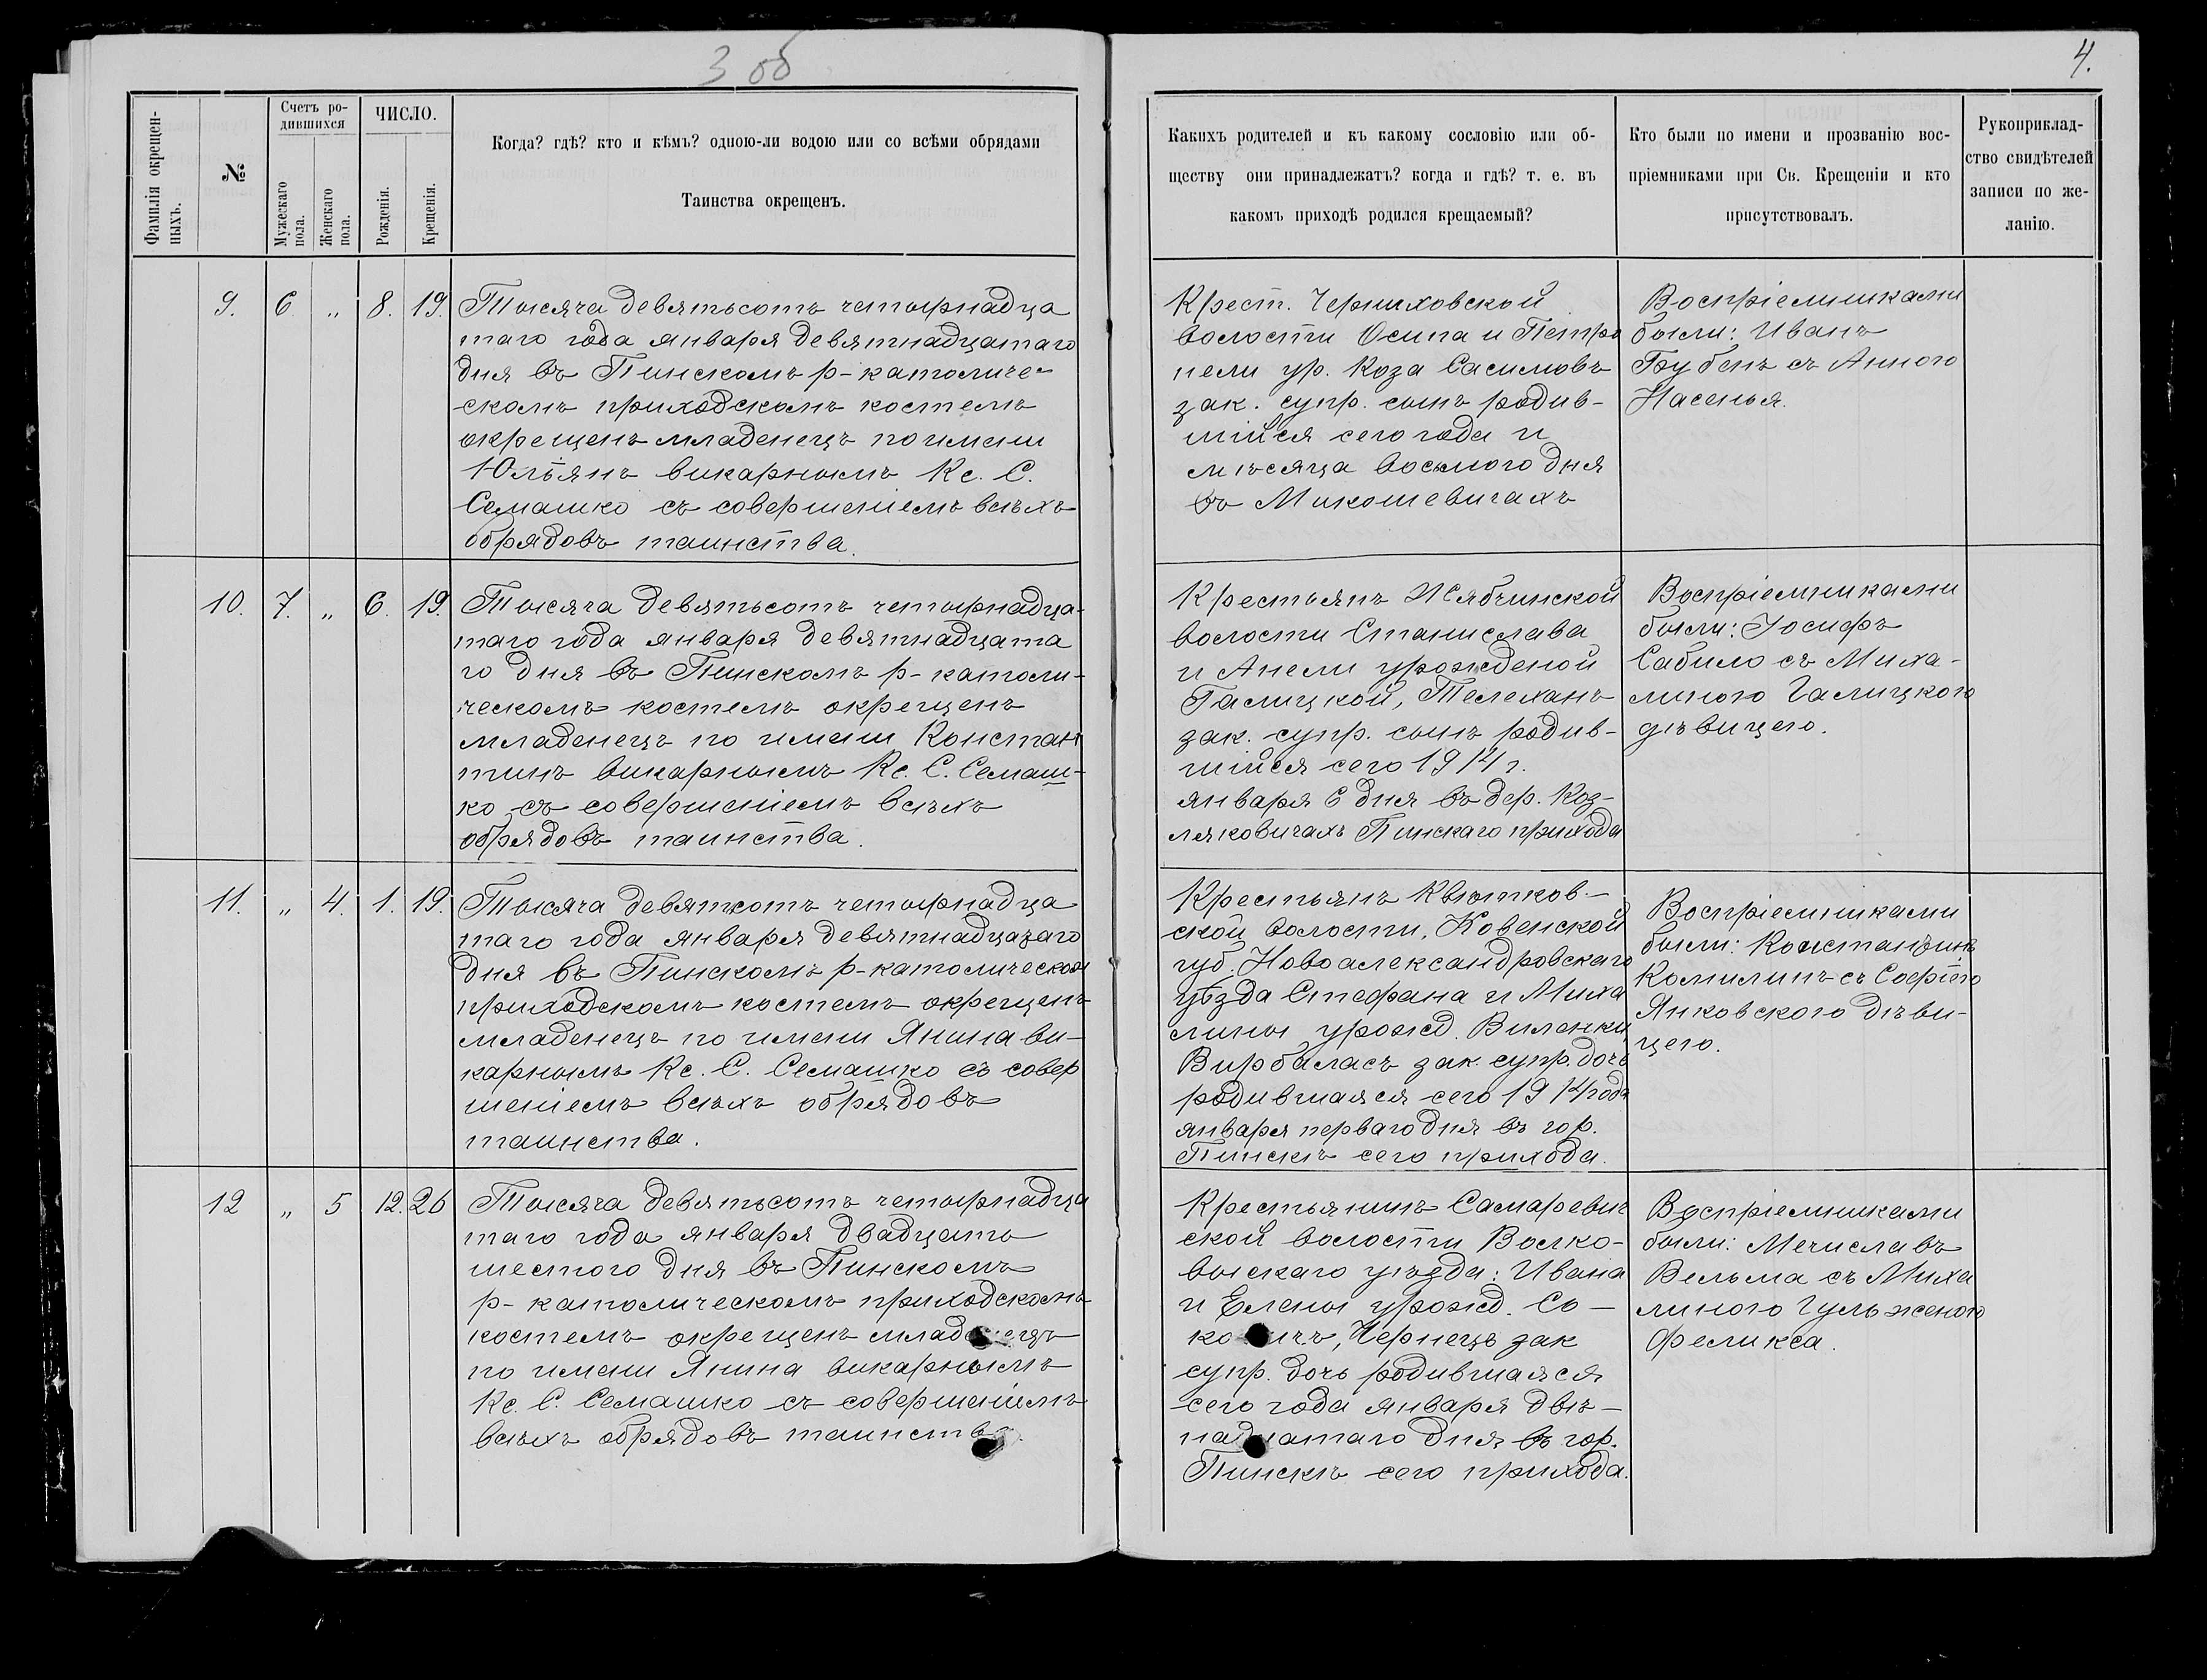 3 об
4.
Фамилія окрещен-
ныхъ.
№
Счетъ ро-
дившихся
Мужескаго
пола.
Женскаго
пола.
ЧИСЛО.
Рожденія.
Крещенія.
Когда? гдѣ? кто и кѣмъ? одною-ли водою или со всѣми обрядами
Таинства окрещенъ.
Какихъ родителей и къ какому сословію или об-
ществу они принадлежатъ? когда и гдѣ? т. е. въ
какомъ приходѣ родился крещаемый?
Кто были по имени и прозванію вос-
пріемниками при Св. Крещеніи и кто
присутствовалъ.
Рукоприклад-
ство свидѣтелей
записи по же-
ланію.
9. 6 „ 8. 19.
Тысяча девятьсотъ четырнадца
таго года января девятнадцатаго
дня въ Пинскомъ р-католиче-
скомъ приходскомъ костелѣ
окрещенъ младенецъ по имени
Юльянъ викарнымъ Кс. С.
Семашко съ совершеніемъ всѣхъ
обрядовъ таинства.
Крест. Черниховской
волости Осипа и Петро
нели ур. Коза Сасимовъ
зак. супр. сынъ родив-
шійся сего года и
мѣсяца восьмого дня
въ Микошевичахъ
Воспріемниками
были: Иванъ
Бубенъ съ Анною
Насенья.
10. 7. „ 6. 19.
Тысяча девятьсотъ четырнадца-
таго года января девятнадцата
го дня въ Пинскомъ р-католи-
ческомъ костелѣ окрещенъ
младенецъ по имени Констан
тинъ викарнымъ Кс. С. Семаш-
ко съ совершеніемъ всѣхъ
обрядовъ таинства.
Крестьянъ Жабчинской
волости Станислава
и Анели урожденой
Галицкой, Телеханъ
зак. супр. сынъ родив-
шійся сего 1914 г.
января 6 дня въ дер. Коз-
ляковичахъ Пинскаго прихода
Воспріемниками
были: Іосифъ
Сабило съ Миха-
линою Галицкою
дѣвицею.
11. „ 4. 1. 19.
Тысяча девятьсотъ четырнадца
таго года января девятнадцатаго
дня въ Пинскомъ р-католическом
приходскомъ костелѣ окрещенъ
младенецъ по имени Янина ви-
карнымъ Кс. С. Семашко съ совер
шеніемъ всѣхъ обрядовъ
таинства.
Крестьянъ Квятков-
ской волости, Ковенской
губ. Новоалександровскаго
уѣзда Стефана и Миха
лины урожд. Виленки
Вирбаласъ зак. супр. дочь
родившаяся сего 1914 года
января перваго дня въ гор.
Пинскѣ сего прихода.
Воспріемниками
были: Константинъ
Комилинъ съ Софіею
Янковскою дѣви-
цею.
12 „ 5 12. 26
Тысяча девятьсотъ четырнадца
таго года января двадцать
шестого дня въ Пинскомъ
р-католическомъ приходскомъ
костелѣ окрещенъ младенецъ
по имени Янина викарнымъ
Кс. С. Семашко съ совершеніемъ
всѣхъ обрядовъ таинства.
Крестьянинъ Самаревич
ской волости Волко-
выскаго уѣзда: Ивана
и Елены урожд. Со-
Чернецъ зак
супр. дочь родившаяся
сего года января двѣ-
надцатаго дня въ гор.
Пинскѣ сего прихода.
Воспріемниками
были: Мечиславъ
Вельма съ Миха
линою Гуль женою
Феликса.